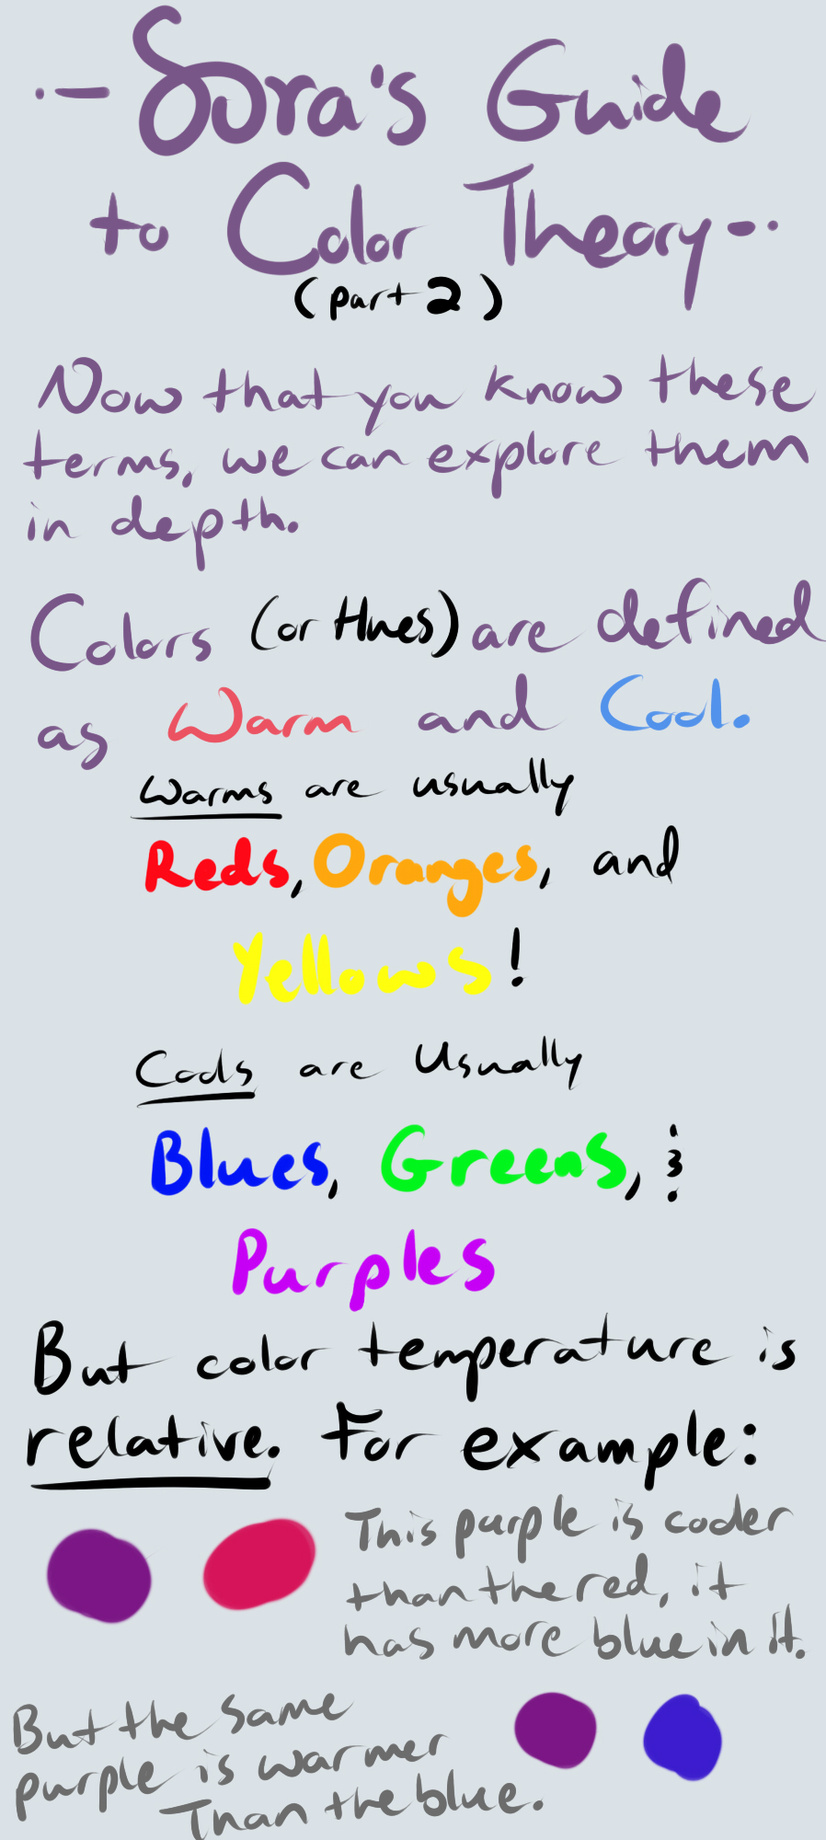 ·-Sora's Guide
to Color Theory-·
(part 2)
Now that you know these
terms, we can explore them
in depth.
Colors (or Hues) are defined
as Warm and Cool.
Warms are usually
Reds, Oranges, and
Yellows!
Cools are Usually
Blues, Greens, &
Purples
But color temperature is
relative. For example:
This purple is cooler
than the red, it
has more blue in it.
But the same
purple is warmer
Than the blue.